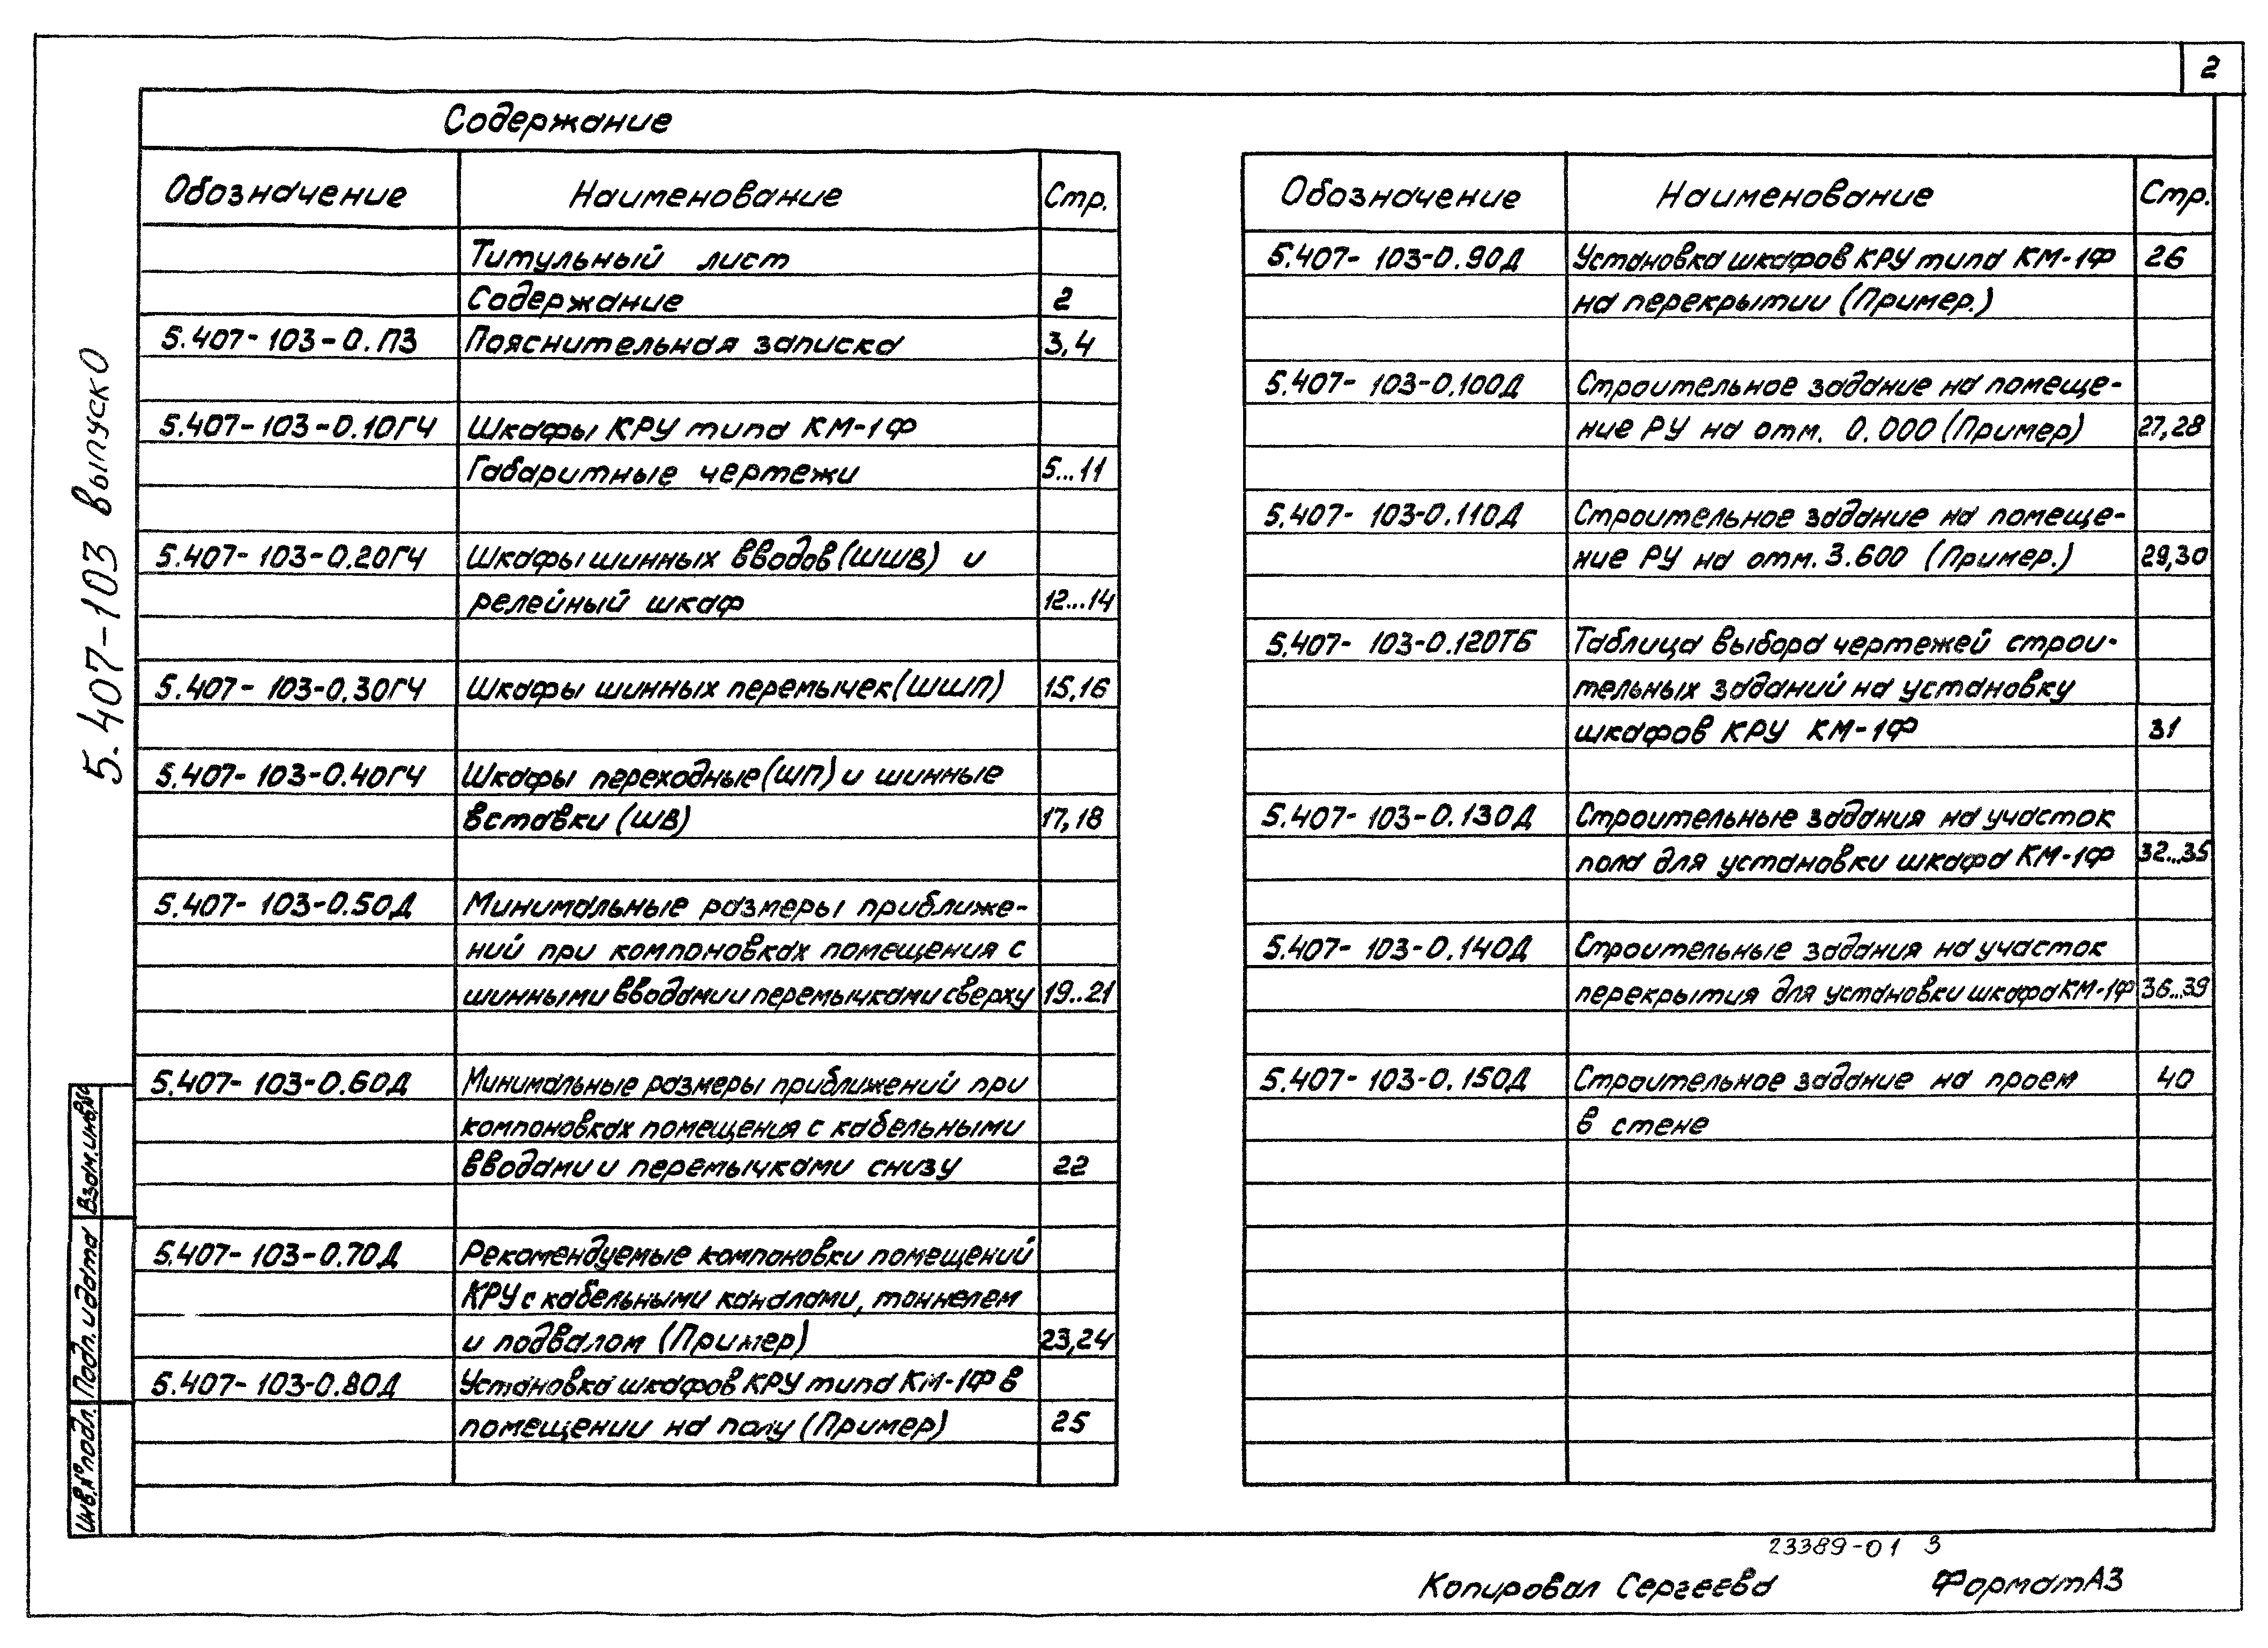 2
Содержание
Обозначение Наименование Стр.
Титульный лист
Содержание 2
5.407-103-0.ПЗ Пояснительная записка 3,4
5.407-103-0.10ГЧ Шкафы КРУ типа КМ-1Ф
Габаритные чертежи 5...11
5.407-103-0.20ГЧ Шкафы шинных вводов (ШШВ) и
релейный шкаф 12...14
5.407-103-0.30ГЧ Шкафы шинных перемычек (ШШП) 15,16
5.407-103-0.40ГЧ Шкафы переходные (ШП) и шинные
вставки (ШВ) 17,18
5.407-103-0.50Д Минимальные размеры приближе-
ний при компоновках помещения с
шинными вводами и перемычками сверху 19..21
5.407-103-0.60Д Минимальные размеры приближений при
компоновках помещения с кабельными
вводами и перемычками снизу 22
5.407-103-0.70Д Рекомендуемые компоновки помещений
КРУ с кабельными каналами, тоннелем
и подвалом (Пример) 23,24
5.407-103-0.80Д Установка шкафов КРУ типа КМ-1Ф в
помещении на полу (Пример) 25
Обозначение Наименование Стр.
5.407-103-0.90Д Установка шкафов КРУ типа КМ-1Ф 26
на перекрытии (Пример.)
5.407-103-0.100Д Строительное задание на помеще-
ние РУ на отм. 0.000 (Пример) 27,28
5.407-103-0.110Д Строительное задание на помеще-
ние РУ на отм. 3.600 (Пример.) 29,30
5.407-103-0.120ТБ Таблица выбора чертежей строи-
тельных заданий на установку
шкафов КРУ КМ-1Ф 31
5.407-103-0.130Д Строительные задания на участок
пола для установки шкафа КМ-1Ф 32...35
5.407-103-0.140Д Строительные задания на участок
перекрытия для установки шкафа КМ-1Ф 36...39
5.407-103-0.150Д Строительное задание на проем 40
в стене
5.407-103 выпуск 0
Взам.инв.№
Подп. и дата
Инв.№подл.
23389-01 3
Копировал Сергеева Формат А3